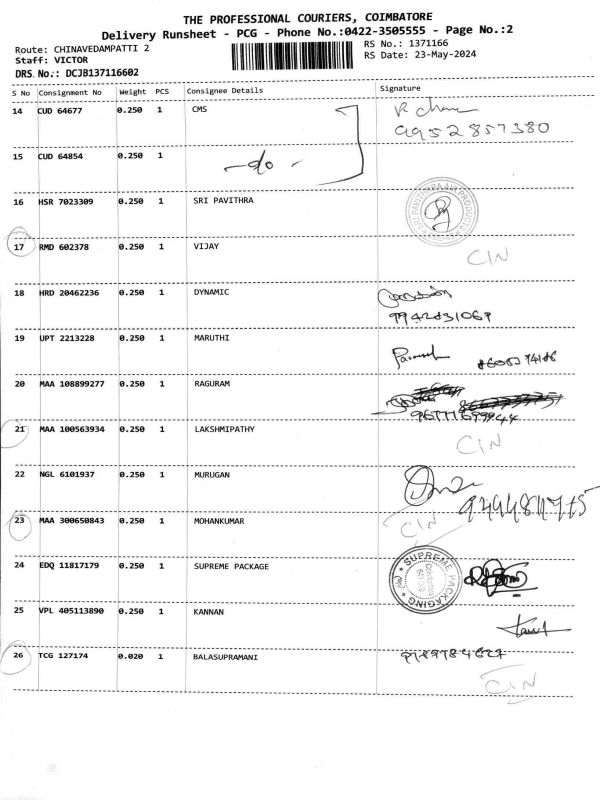 THE PROFESSIONAL COURIERS, COIMBATORE
Delivery Runsheet - PCG - Phone No.:0422-3505555 - Page No.:2
Route: CHINAVEDAMPATTI 2
RS No.: 1371166
Staff: VICTOR
RS Date: 23-May-2024
DRS No.: DCJB137116602
S No Consignment No Weight PCS Consignee Details Signature
14 CUD 64677 0.250 1 CMS
9952857380
15 CUD 64854 0.250 1 -do-
16 HSR 7023309 0.250 1 SRI PAVITHRA
17 RMD 602378 0.250 1 VIJAY CIN
18 HRD 20462236 0.250 1 DYNAMIC
9942831067
19 UPT 2213228 0.250 1 MARUTHI
20 MAA 108899277 0.250 1 RAGURAM
21 MAA 100563934 0.250 1 LAKSHMIPATHY CIN
22 NGL 6101937 0.250 1 MURUGAN
23 MAA 300650843 0.250 1 MOHANKUMAR CIN
24 EDQ 11817179 0.250 1 SUPREME PACKAGE SUPREME PACKAGING
25 VPL 405113890 0.250 1 KANNAN
26 TCG 127174 0.020 1 BALASUPRAMANI 9789784627
CIN